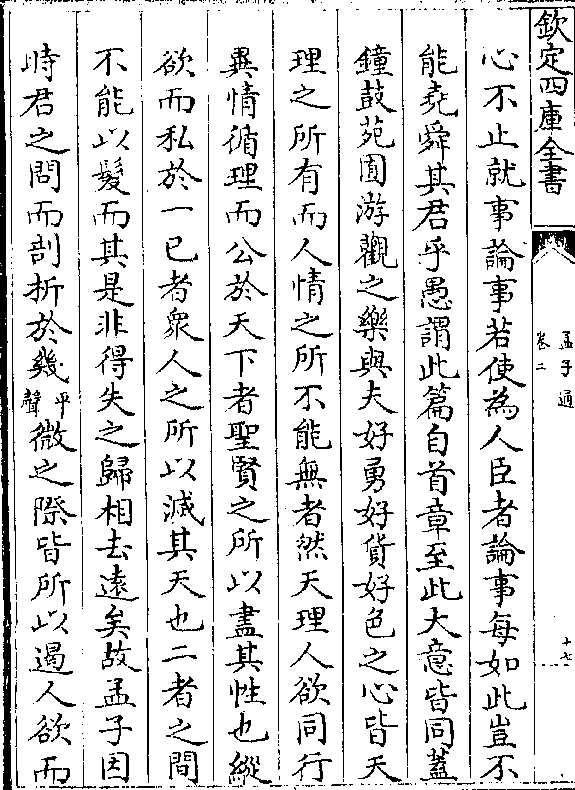 欽定四庫全書
孟子通
卷二
十七
心不止就事論事若使為人臣者論事每如此豈不
能堯舜其君乎愚謂此篇自首章至此大意皆同蓋
鐘鼓苑囿游觀之樂與夫好勇好貨好色之心皆天
理之所有而人情之所不能無者然天理人欲同行
異情循理而公於天下者聖賢之所以盡其性也縱
欲而私於一已者衆人之所以滅其天也二者之間
不能以髮而其是非得失之歸相去遠矣故孟子因
時君之問而剖折於幾平聲微之際皆所以遏人欲而